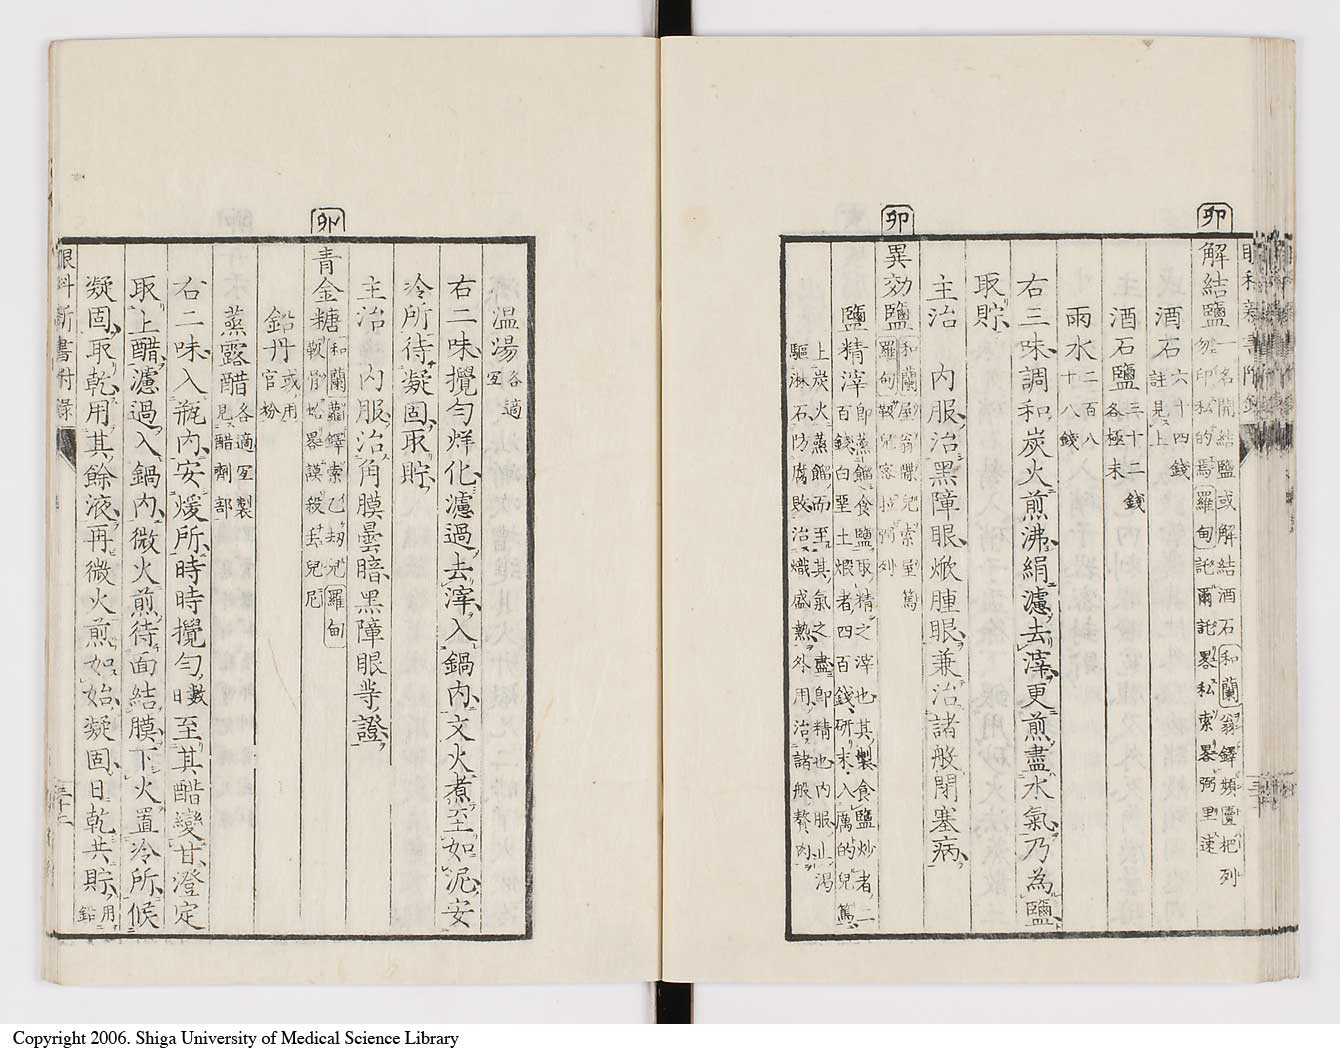 卯
解結鹽
一名開結鹽或解結酒石和蘭翁鐸頻賣把列
勿印私的焉羅甸託爾託畧私索畧弼里速
酒石六十四錢
註見上
酒石鹽三十二錢
各極末
雨水二百八
十八錢
右三味調和炭火煎沸絹濾去滓更煎盡水氣乃為鹽
取貯
主治 內服治黑障眼焮腫眼兼治諸般閉塞病
卯
異効鹽
鹽精滓即蒸餾食鹽取精之滓也其製食鹽炒者二
百錢白堊土煆者四百錢研末入厲的兒篤
上炭火蒸餾而至其氣之盡即精也內服止渴
驅淋石防腐敗治熾盛熱外用治諸般贅肉
温湯各適
宜
右二味攪勻烊化濾過去滓入鍋內文火煮至如泥安
冷所待凝固取貯
主治 內服治角膜曇暗黑障眼等證
卯
青金糖
鉛丹或用
官粉
蒸露醋各適宜製
見醋劑部
右二味入瓶內安煖所時時攪勻數日至其醋變甘澄定
取上醋濾過入鍋內微火煎待面結膜下火置冷所候
凝固取乾用其餘液再微火煎如始凝固日乾共貯用
鉛
眼科新書附錄
三十二
Copyright 2006. Shiga University of Medical Science Library